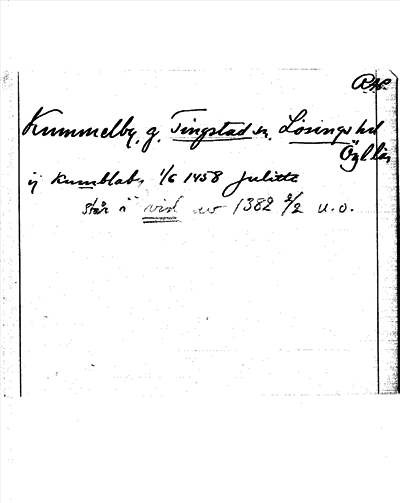 Kummelby, g. Tingstad sn. Lösings hd
Ögl län
ij Kumblaby 1/6 1458 Julitta
står i vid av 1382 2/2 u.o.